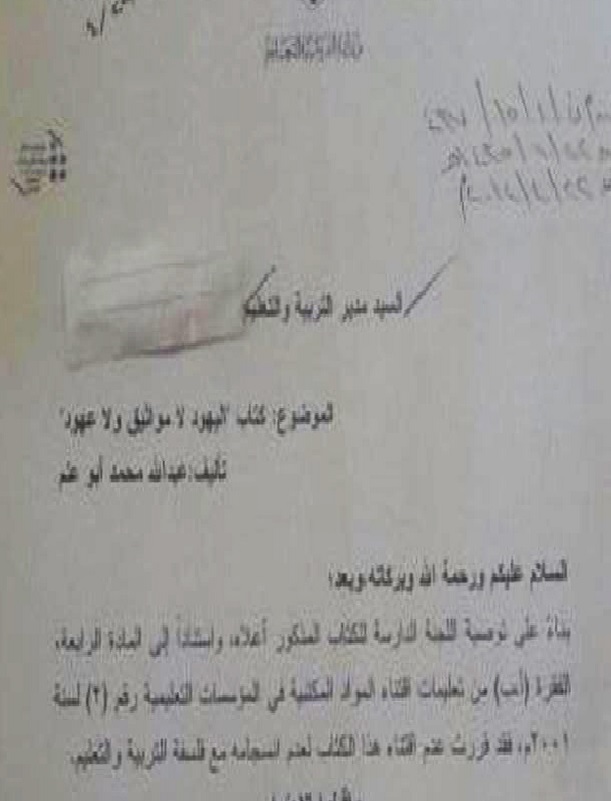 وزارة التربية والتعليم
السيد مدير التربية والتعليم
الموضوع: كتاب "اليهود لا مواثيق ولا عهود"
تأليف: عبدالله محمد أبو علم
السلام عليكم ورحمة الله وبركاته وبعد؛
بناءً على توصية اللجنة الدارسة للكتاب المذكور أعلاه، واستناداً إلى المادة الرابعة،
الفقرة (أ،ب) من تعليمات اقتناء المواد المكتبية في المؤسسات التعليمية رقم (٢) لسنة
٢٠٠١م، فقد قررت عدم اقتناء هذا الكتاب لعدم انسجامه مع فلسفة التربية والتعليم.